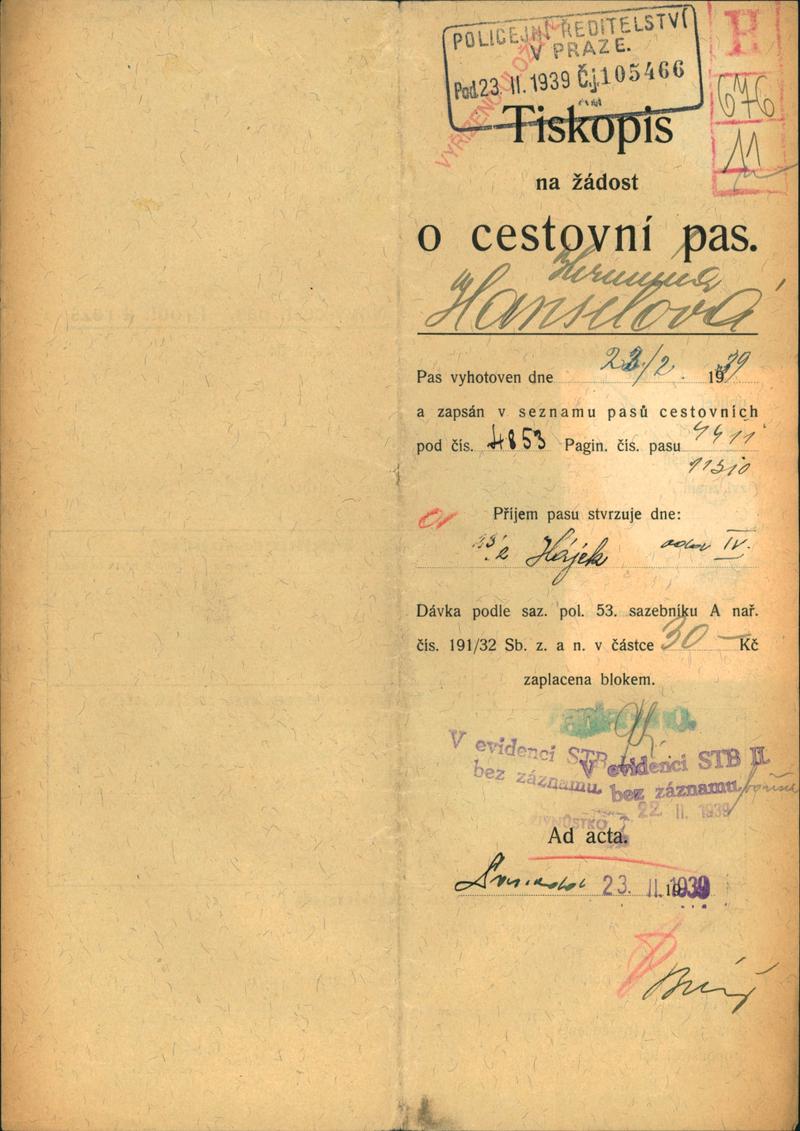 POLICEJNÍ ŘEDITELSTVÍ
V PRAZE.
Pod 23. II. 1939 Čj. 105466
VYŘÍZENO ULOŽ
H
676
11
Tiskopis
na žádost
o cestovní pas.
Hermina
Hanselová
Pas vyhotoven dne 23/2. 1939
a zapsán v seznamu pasů cestovních
pod čís. 4853 Pagin. čís. pasu 4411
11310
Příjem pasu stvrzuje dne:
23/2 Hájek odd IV.
Dávka podle saz. pol. 53. sazebníku A nař.
čís. 191/32 Sb. z. a n. v částce 30 — Kč
zaplacena blokem.
V evidenci STB
bez záznamu.
V evidenci STB II.
bez záznamu.
22 II. 1939
Ad acta.
23. II. 1939